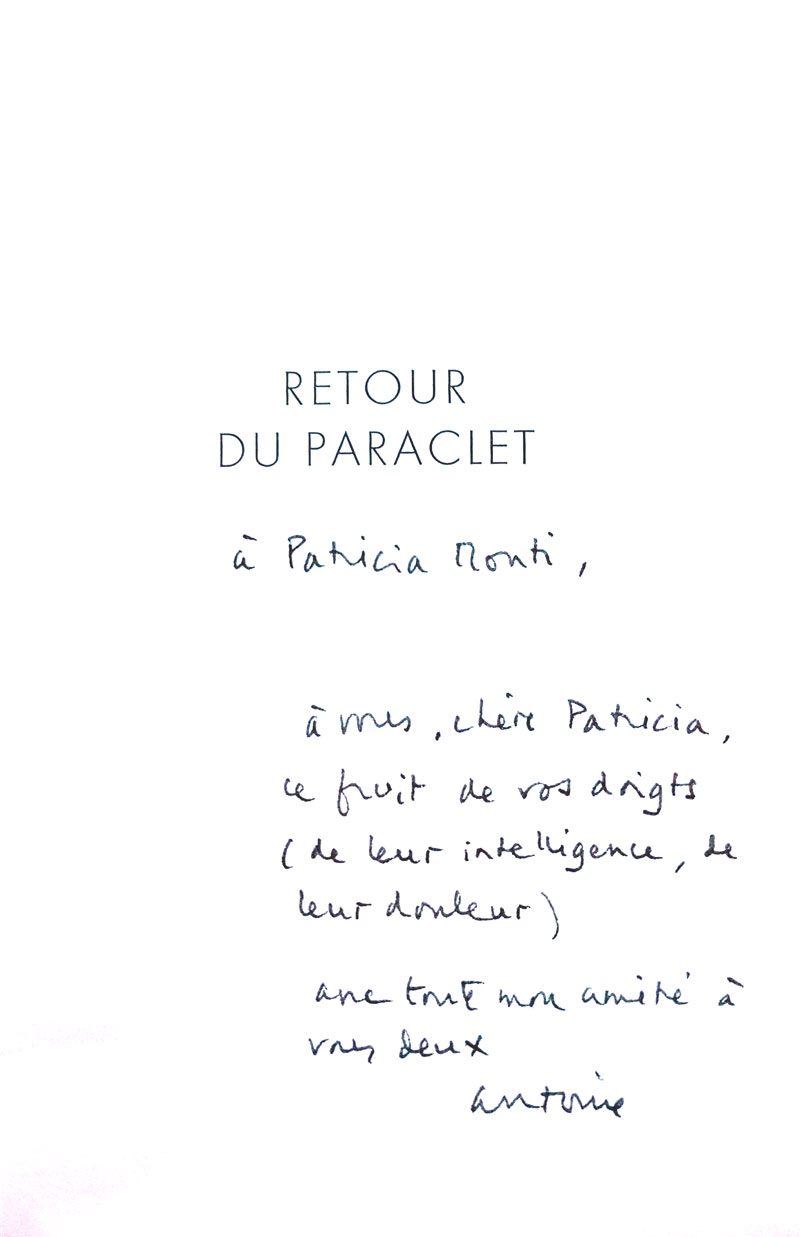 RETOUR
DU PARACLET
à Patricia Monti,
à vous, chère Patricia,
ce fruit de vos doigts
(de leur intelligence, de
leur douleur)
avec toute mon amitié à
vous deux
Antoine